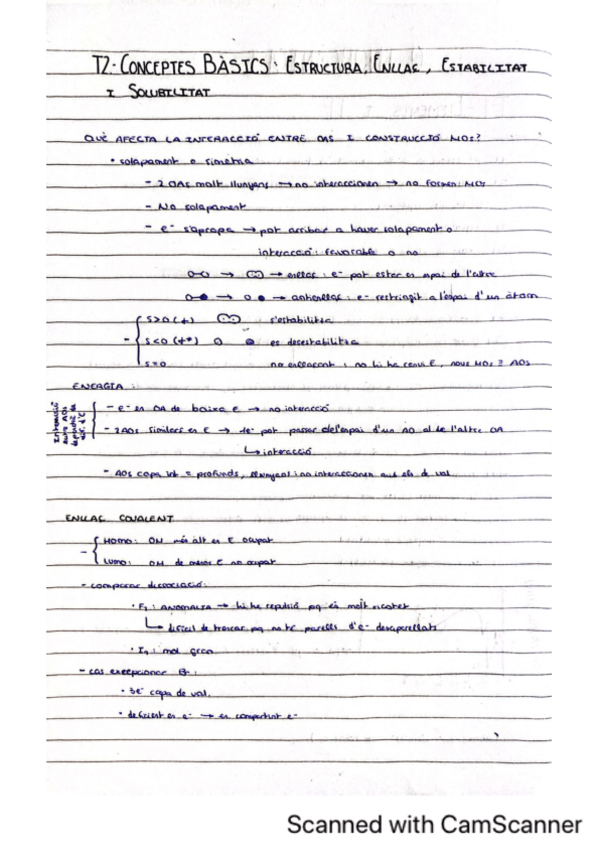 T2·CONCEPTES BÀSICS: ESTRUCTURA, ENLLAÇ, ESTABILITAT
I SOLUBILITAT
QUÈ AFECTA LA INTERACCIÓ ENTRE OAS I CONSTRUCCIÓ MOS?
• solapament o simetria
- 2 OAS molt llunyans → no interaccionen → no formen MOs
- NO solapament
- e⁻ s'apropa → pot arribar a haver solapament o
interacció: favorable o no
→ → enllaç: e⁻ pot estar en espai de l'altre
→ → antienllaç: e⁻ restringit a l'espai d'un àtom
S>0 (+) s'estabilitza
- S<0 (+*) es desestabilitza
S=0 no enllaçant: no hi ha canvi E, nous MOs = AOs
ENERGIA:
Interacció entre AOs
- e⁻ en OA de baixa E → no interacció
- 2AOs similars en E → e⁻ pot passar de l'espai d'un AO al de l'altre OA
↳ interacció
- AOs capa int = profunds, i no interaccionen amb els de val
ENLLAÇ COVALENT
- HOMO: OM més alt en E ocupat
LUMO: OM de menor E no ocupat
- comparar dissociació:
• F₂: ANOMALIA → hi ha repulsió pq és molt
↳ difícil de trencar pq no té parells d'e⁻ desaparellats
• I₂: mol gran
- cas excepcional B:
• 3e⁻ capa de val.
• deficient en e⁻ → en compartint e⁻
Scanned with CamScanner